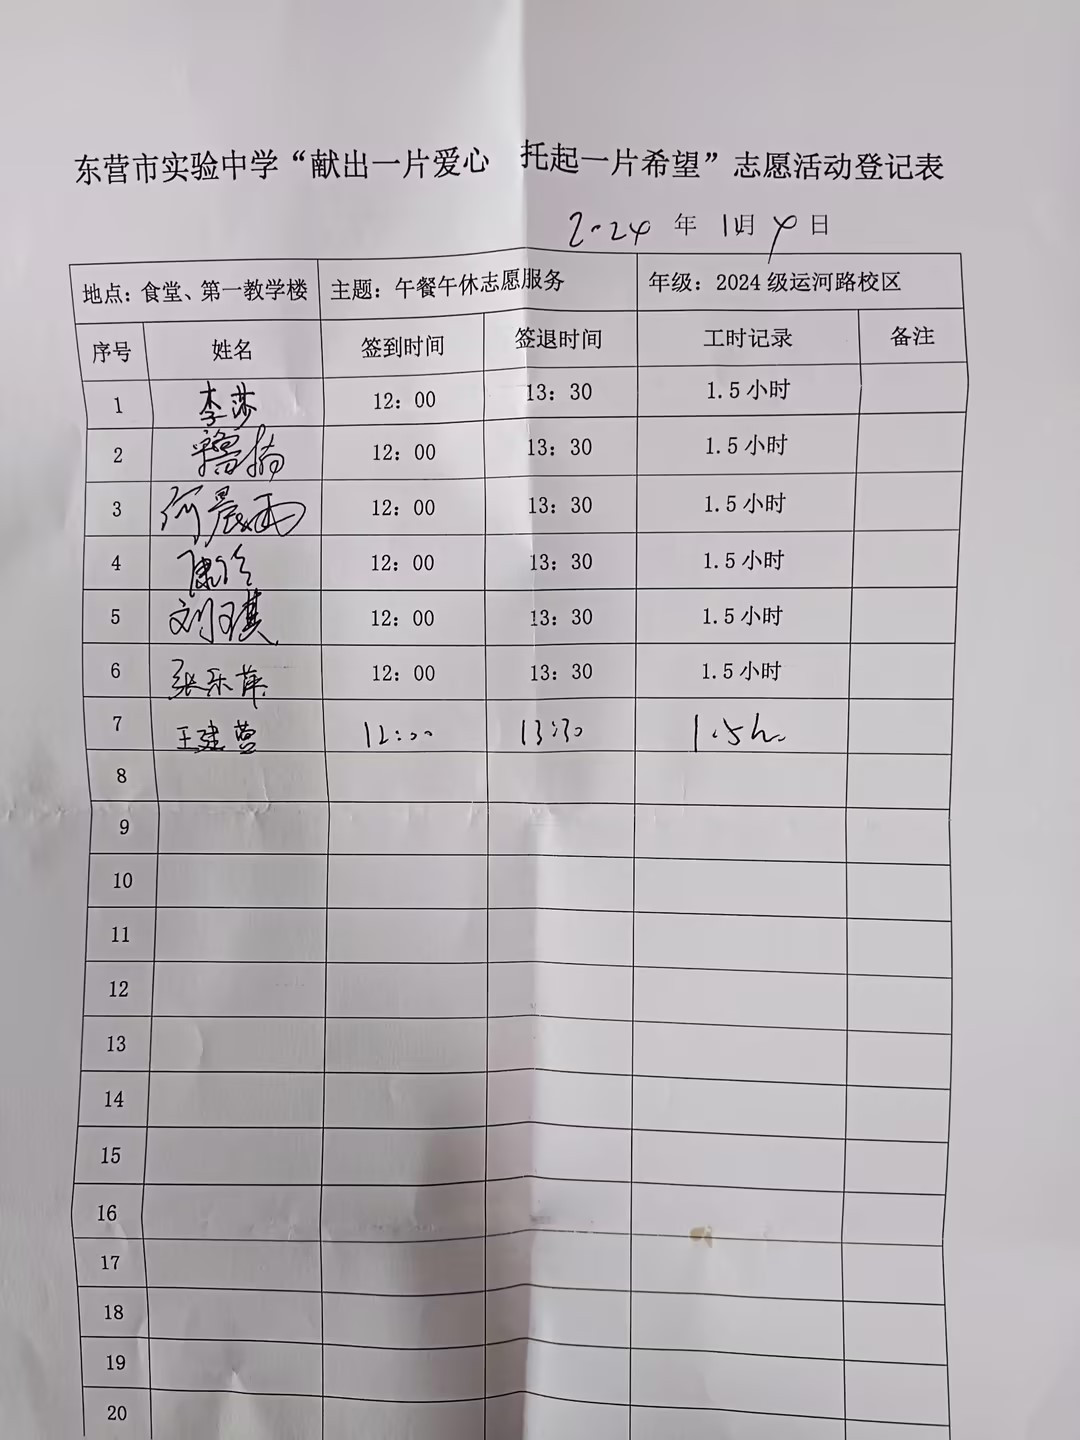 东营市实验中学“献出一片爱心 托起一片希望”志愿活动登记表
2024 年 11月 4 日
地点：食堂、第一教学楼 主题：午餐午休志愿服务 年级：2024 级运河路校区
序号 姓名 签到时间 签退时间 工时记录 备注
1 李莎 12：00 13：30 1.5 小时
2 12：00 13：30 1.5 小时
3 何晨雨 12：00 13：30 1.5 小时
4 12：00 13：30 1.5 小时
5 刘琪 12：00 13：30 1.5 小时
6 张乐萍 12：00 13：30 1.5 小时
7 王建营 12:00 13:30 1.5h
8
9
10
11
12
13
14
15
16
17
18
19
20